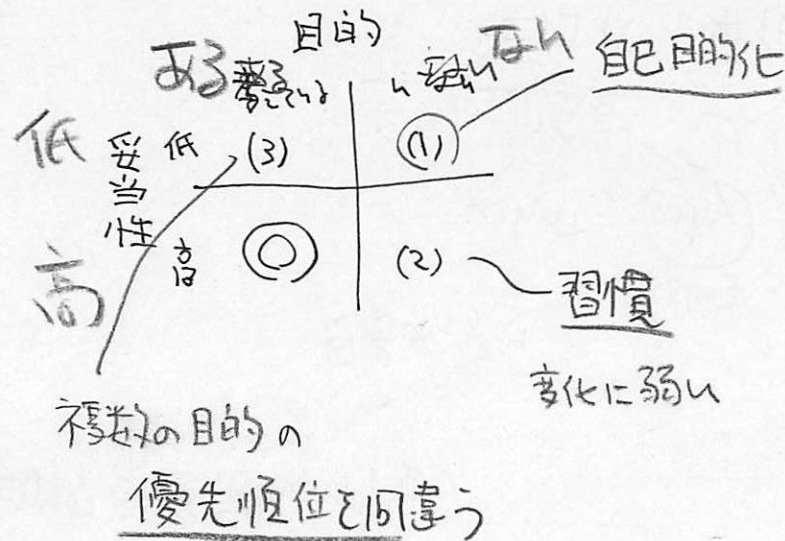 目的
ある
ない
自己目的化
低
妥当性
低
(3)
(1)
高
高
(2)
習慣
変化に弱い
複数の目的の
優先順位を間違う